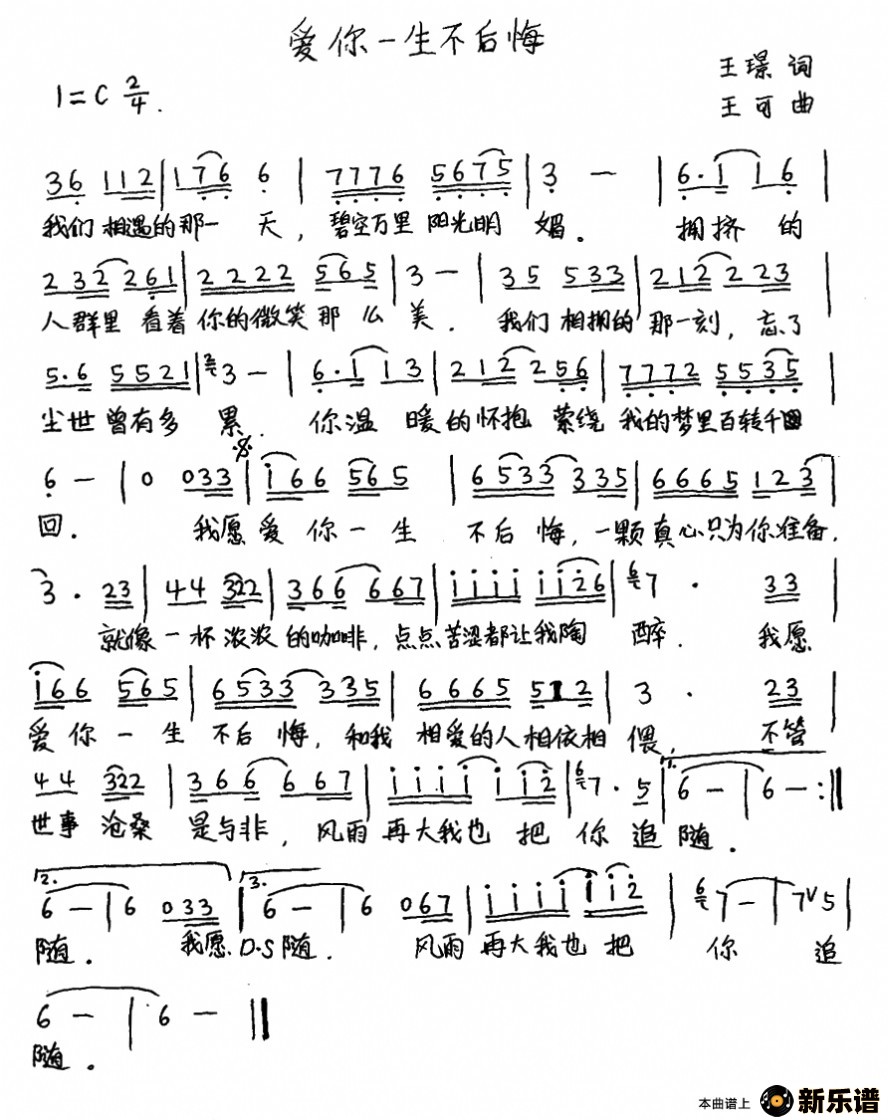 爱你一生不后悔
王璟 词
1=C 2/4.
王可 曲
36 112|176 6|7776 5675|3 -|6·1 16|
我们相遇的那一 天，碧空万里 阳光明 媚。 拥挤的
232 261|2222 565|3-|35 533|212 223|
人群里 看着你的微笑那么美．我们相拥的那一刻，忘了
5·6 5521|3-|6·1 13|212 256|7772 5535|
尘世曾有多 累．你温 暖的怀抱 萦绕 我的梦里百转千
6 -|0 033|i66 565|6533 335|6665 123|
回． 我愿爱你一生 不后悔，一颗真心只为你准备．
3· 23|44 322|366 667|iiii ii26|67· 33|
就像一杯浓浓的咖啡，点点苦涩都让我陶 醉． 我愿
i66 565|6533 335|6665 512|3· 23|
爱你一生 不后悔，和我 相爱的人相依相 偎， 不管
1.
44 322|366 667|iiii ii2|67·5|6-|6-:‖
世事沧桑 是与非，风雨再大我也 把 你 追随．
2. 3.
6-|6 033|6-|6 067|iiii ii2|67-|7ⱽ5|
随． 我愿 D.S 随． 风雨再大我也把 你 追
6 -|6 -‖
随．
本曲谱上 新乐谱